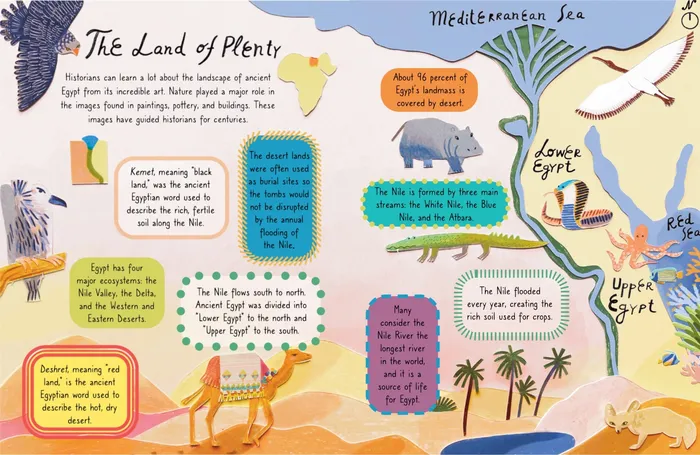 The Land of Plenty
Historians can learn a lot about the landscape of ancient
Egypt from its incredible art. Nature played a major role in
the images found in paintings, pottery, and buildings. These
images have guided historians for centuries.
Kemet, meaning "black
land," was the ancient
Egyptian word used to
describe the rich, fertile
soil along the Nile.
The desert lands
were often used
as burial sites so
the tombs would
not be disrupted
by the annual
flooding of
the Nile.
Egypt has four
major ecosystems: the
Nile Valley, the Delta,
and the Western and
Eastern Deserts.
The Nile flows south to north.
Ancient Egypt was divided into
"Lower Egypt" to the north and
"Upper Egypt" to the south.
Deshret, meaning "red
land," is the ancient
Egyptian word used to
describe the hot, dry
desert.
Mediterranean Sea
N
About 96 percent of
Egypt's landmass is
covered by desert.
Lower
Egypt
The Nile is formed by three main
streams: the White Nile, the Blue
Nile, and the Atbara.
Red
Sea
Upper
Egypt
The Nile flooded
every year, creating the
rich soil used for crops.
Many
consider the
Nile River the
longest river
in the world,
and it is a
source of life
for Egypt.